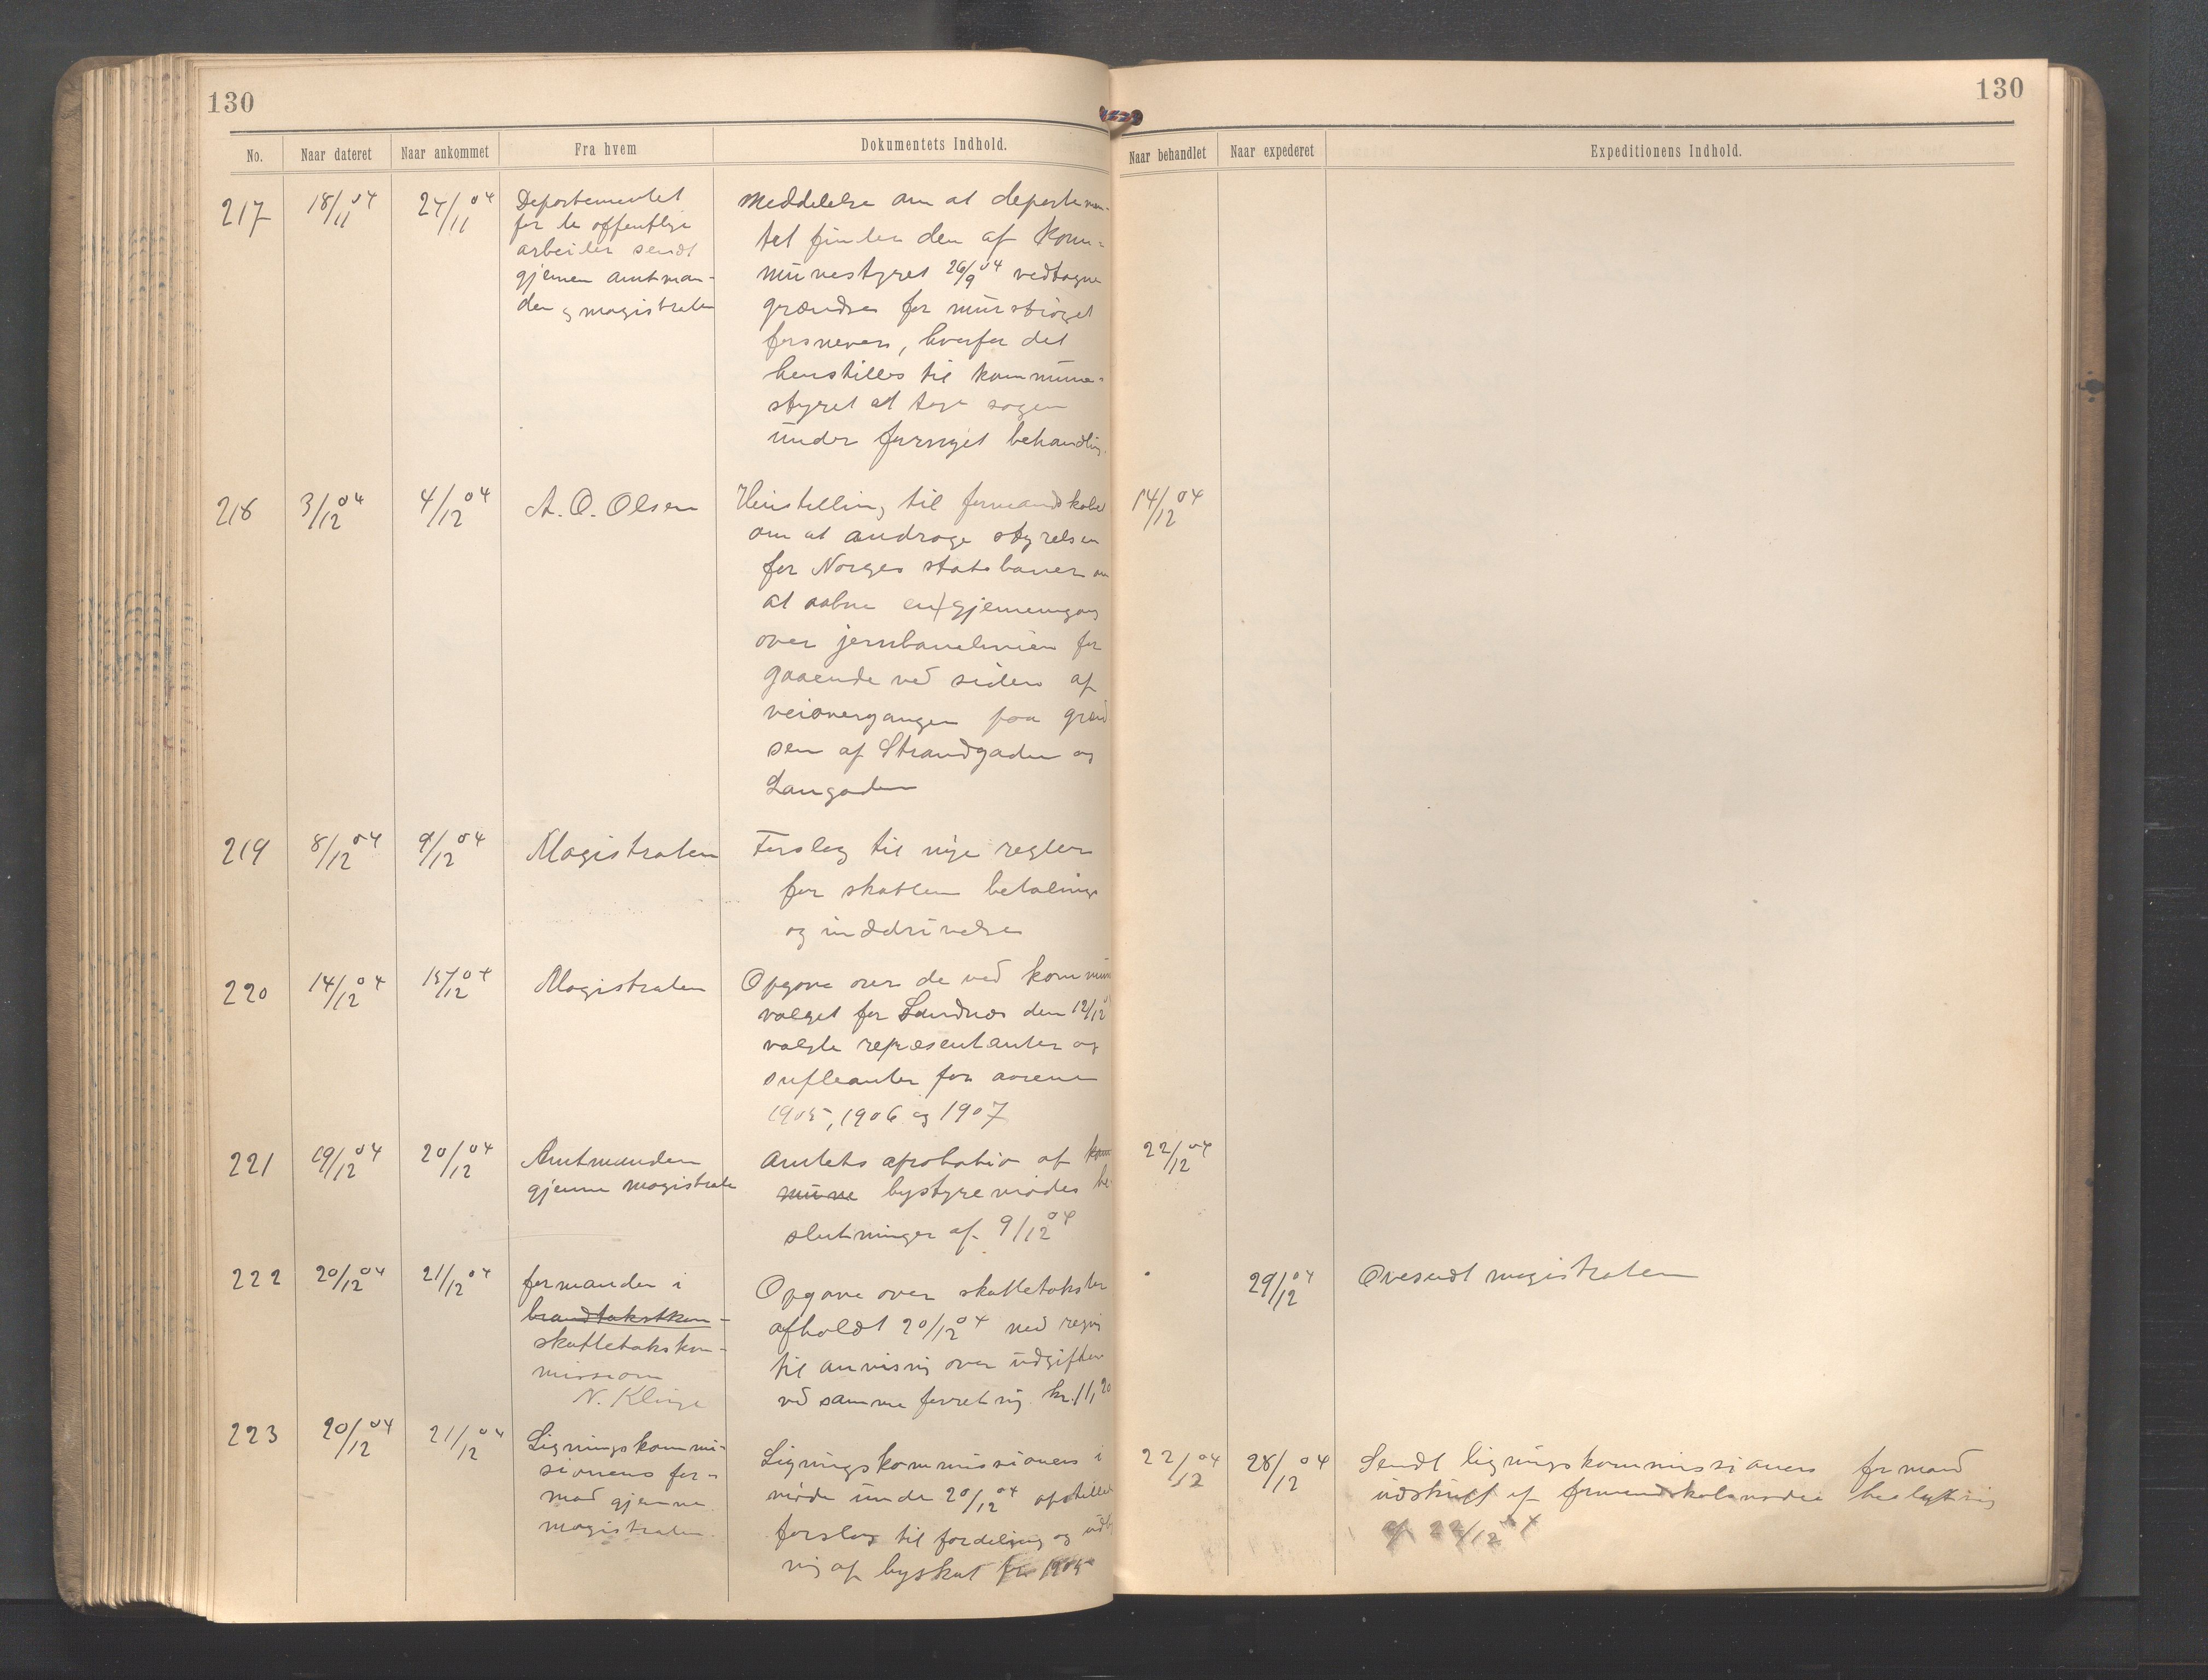 130
130
No.
Naar dateret
Naar ankommet
Fra hvem
Dokumentets Indhold.
Naar behandlet
Naar expederet
Expeditionens Indhold.
217
18/11 04
24/11 04
Departementet
for de offentlige
arbeider sendt
gjennem amtman-
den og magistraten
Meddelelse om at departemen-
tet finder den af kom-
munestyret 26/9 04 vedtagne
grændse for murstrøget
for snever, hvorfor det
henstilles til kommune-
styret at tage sagen
under fornyet behandling.
218
3/12 04
4/12 04
A. O. Olsen
Henstilling til formandskabet
om at andrage styrelsen
for Norges statsbaner om
at aabne en gjennemgang
over jernbanelinien for
gaaende ved siden af
veiovergangen paa grænd
sen af Strandgaden og
Langgaden
14/12 04
219
8/12 04
9/12 04
Magistraten
Forslag til nye regler
for skattens betaling
og inddrivelse
220
14/12 04
15/12 04
Magistraten
Opgave over de ved kommune
valget for Sandnes den 12/12
valgte repræsentanter og
supleanter for aarene
1905, 1906 og 1907
221
19/12 04
20/12 04
Amtmanden
gjennem magistraten
Amtets aprobation af kom
mune bystyremødes be-
slutninger af 9/12 04
22/12 04
222
20/12 04
21/12 04
formanden i
brandtakstkom-
skattetakstkom-
mission
N. Klinge
Opgave over skattetakster
afholdt 20/12 04 med regning
til anvisning over udgifter
ved samme forretning kr. 11,20
29/12 04
Oversendt magistraten
223
20/12 04
21/12 04
Ligningskommi-
sionens for-
mand gjennem
magistraten
Ligningskommissionens i
møde under 20/12 04 opstillet
forslag til fordeling og
ning af byskat for 1905
22/12 04
28/12 04
Sendt ligningskommissionens formand
udskrift af formandskabsmødes beslutning
af 22/12 04